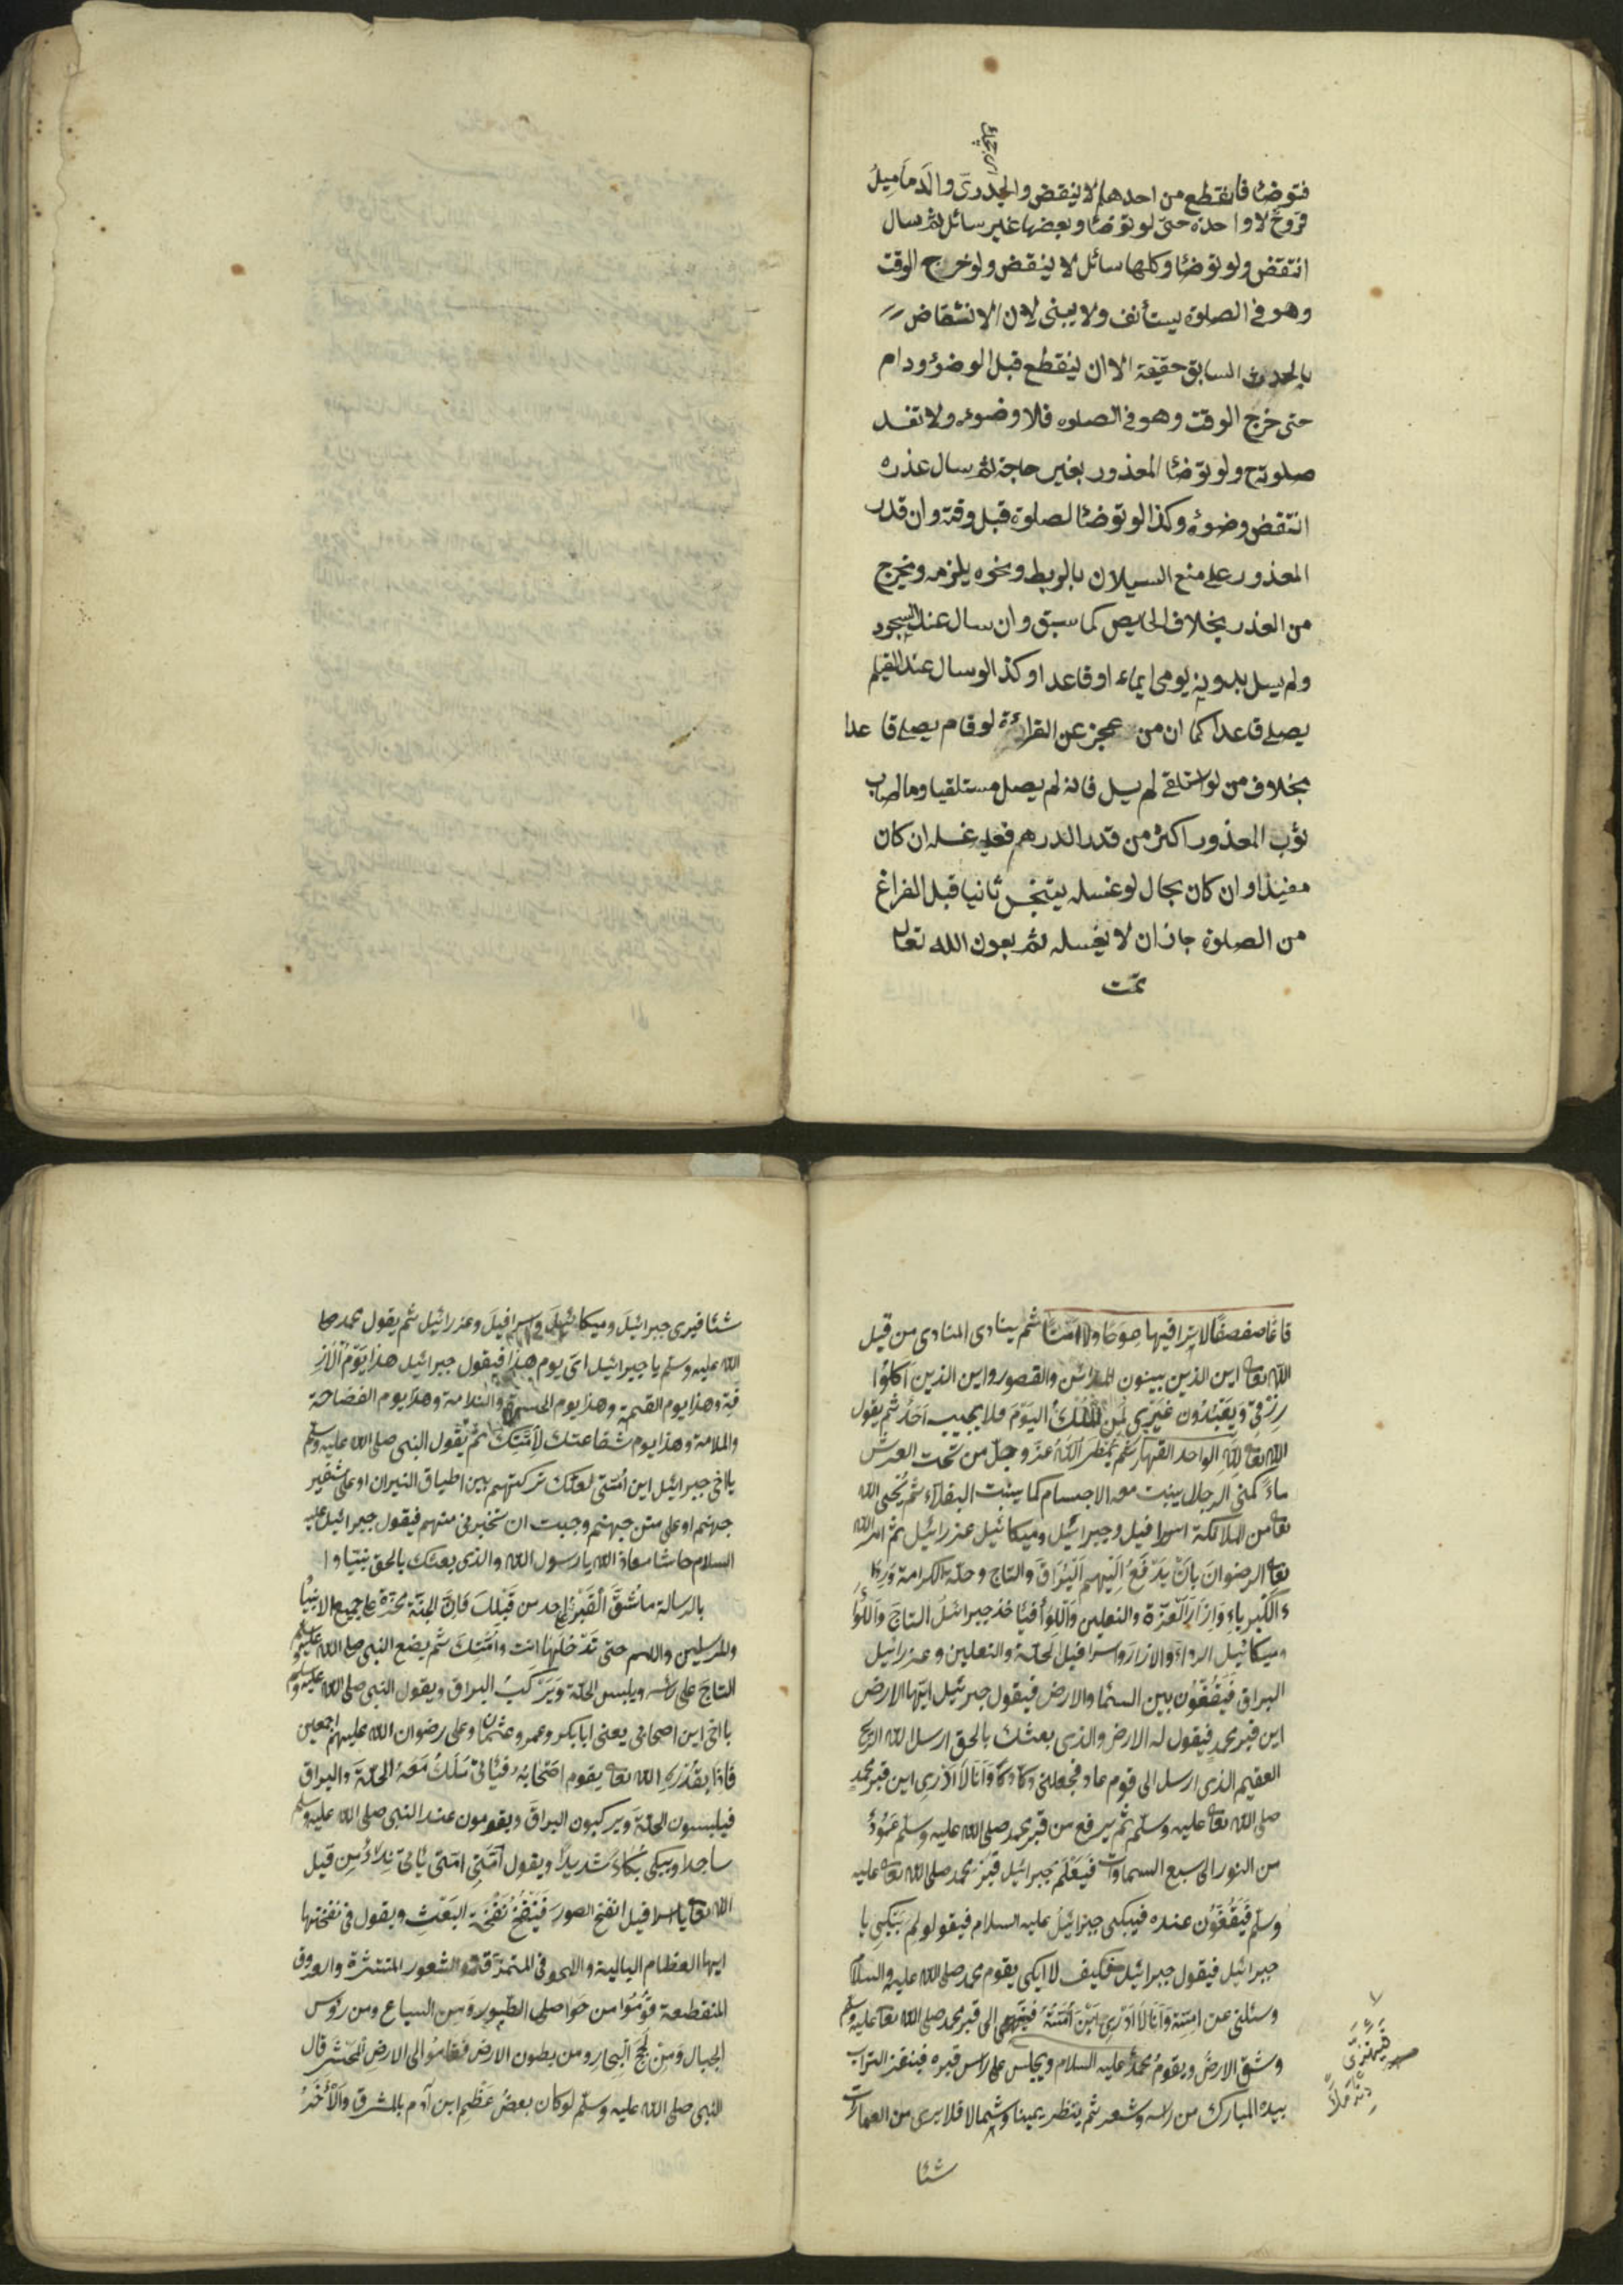 فتوضأ فانقطع من احدهما لا ينقض والجدرىّ والدماميل
قروح لا واحدة حتى لو توضأ وبعضها غير سائل ثم سال
انتقض ولو توضأ وكلها سائل لا ينقض ولو خرج الوقت
وهو فى الصلوة يستأنف ولا يبنى لان الانتقاض
بالحدث السابق حقيقة الا ان ينقطع قبل الوضؤ ودام
حتى خرج الوقت وهو فى الصلوه فلا وضوء ولا تفسد
صلوته ولو توضأ المعذور بغير حاجة ثم سال عذره
انتقض وضوئه وكذا لو توضأ لصلوة قبل وقته وان قدر
المعذور على منع السيلان بالربط ونحوه يلزمه ويخرج
من العذر بخلاف الحايض كما سبق وان سال عند السجود
ولم يسل بدونه يومى ايماء او قاعدا وكذا لو سال عند القيام
يصلى قاعدا كما ان من عجز عن القرائة لو قام يصلى قاعدا
بخلاف من لو استلقى لم يسل فانه لم يصل مستلقيا وما اصاب
ثوب المعذور اكثر من قدر الدرهم فعليه غسله ان كان
مفيدا وان كان بحال لو غسله يتنجس ثانيا قبل الفراغ
من الصلوة جاز ان لا يغسله ثم بعون الله تعالى
تمت
قاعًا صفصفًا لا ترا فيها عوجًا ولا امتا ثم ينادى المنادى من قبل
الله تعالى اين الذين يبنون المدائن والقصور واين الذين اكلوا
رزقى ويعبدون غيرى لمن الملك اليوم فلا يجيب احد ثم يقول
الله تعالى لله الواحد القهار ثم يمطر الله عز وجل من تحت العرش
ماءً كمنى الرجال ينبت معه الاجسام كما ينبت البقلاء ثم يُحيى الله
تعالى من الملائكة اسرافيل وجبرائيل وميكائيل عزرائيل ثم امر الله
تعالى الرضوان بان يدفع اليهم البراق والتاج وحلة الكرامة ورداء
الكبرياء وازار العزة والنعلين واللواء فياخذ جبرائيل التاج واللواء
وميكائيل الرداء والازار واسرافيل الحلة والنعلين وعزرائيل
البراق فيقفون بين السماء والارض فيقول جبرئيل ايتها الارض
اين قبر محمد فيقول له الارض والذى بعثك بالحق ارسل الله الريح
العقيم الذى ارسل الى قوم عاد فجعلنى دكّا دكّا وانا لا ادرى اين قبر محمد
صلى الله تعالى عليه وسلم ثم يرفع من قبر محمد صلى الله عليه وسلم عمودٌ
من النور الى سبع السماوات فيعلم جبرائيل قبر محمد صلى الله تعالى عليه
وسلم فيقفون عنده فيبكى جبرائيل عليه السلام فيقولو لم تبكى يا
جبرائيل فيقول جبرائيل فكيف لا ابكى يقوم محمد صلى الله عليه والسلام
وسئلنى عن امته وانا لا ادرى اين امته الى قبر محمد صلى الله تعالى عليه وسلم
وشق الارض ويقوم محمد عليه السلام ويجلس على راس قبره فينفز التراب
بيده المبارك من راسه وشعره ثم ينظر يمينا وشمالا فلا يرى من العمارات
شئا
شئا فيرى جبرائيل وميكائيل واسرافيل وعزرائيل ثم يقول محمد صلى
الله عليه وسلم يا جبرائيل اىّ يوم هذا فيقول جبرائيل هذا يوم الاز
فة وهذا يوم القيمة وهذا يوم الحسرة والندامة وهذا يوم الفضاحة
والملامة وهذا يوم شفاعتك لامتك ثم يقول النبى صلى الله عليه وسلم
يا اخى جبرائيل اين امتى لعلك تركتهم بين اطباق النيران او على شفير
جهنم او على متن جهنم وجبت ان تخبرنى منهم فيقول جبرائيل عليه
السلام حاشا معاذ الله يا رسول الله والذى بعثك بالحق نبيا و ا
بالرسالة ما شُقّ القبر احد من قبلك فان الجنة محرمة على جميع الانبياء
والمرسلين والامم حتى تدخلها انت وامتك ثم يضع النبى صلى الله عليه وسلم
التاج على راسه ويلبس الحلة ويركب البراق ويقول النبى صلى الله عليه وسلم
يا اخى اين اصحابى يعنى ابا بكر وعمر وعثمان وعلى رضوان الله عليهم اجمعين
فاذا بقدرة الله تعالى يقوم اصحابه فيأتى ملك معه الحلة والبراق
فيلبسون الحلة ويركبون البراق ويقومون عند النبى صلى الله عليه وسلم
ساجدا ويبكى بكاءً شديدا ويقول امتى امتى يأتى نداءٌ من قبل
الله تعالى يا اسرافيل انفخ الصور فينفخ نفخة البعث ويقول فى نفختها
ايها العظام البالية واللحوفى المتمزقة والشعور المنتشرة والعروق
المنقطعة قوموا من حواصل الطيور ومن السباع ومن رؤس
الجبال ومن لجج البحار ومن بطون الارض فقاموا الى الارض المحشر قال
النبى صلى الله عليه وسلم لو كان بعض عظم ابن آدم بالمشرق والآخر